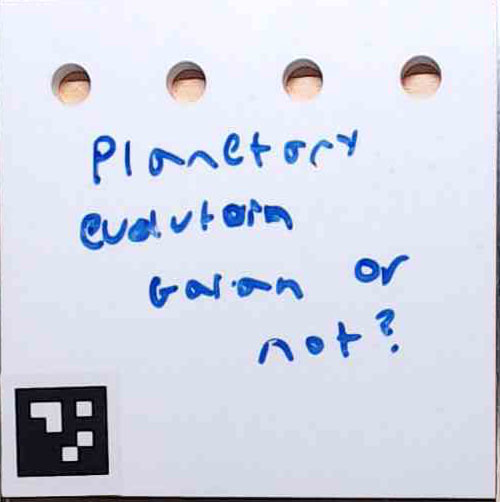 Planetary
evolutoin
Gaian or
not?